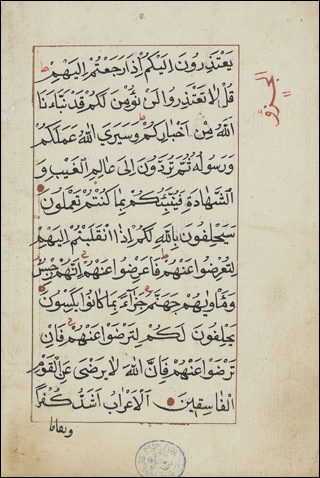 يَعْتَذِرُونَ اِلَيْكُمْ اِذَا رَجَعْتُمْ اِلَيْهِمْ ط
قُلْ لَا تَعْتَذِرُوا لَنْ نُؤْمِنَ لَكُمْ قَدْ نَبَّاَنَا
اللهُ مِنْ اَخْبَارِكُمْ ط وَسَيَرَى اللهُ عَمَلَكُمْ
وَرَسُولُهُ ثُمَّ تُرَدُّونَ اِلَى عَالِمِ الْغَيْبِ وَ
الشَّهَادَةِ فَيُنَبِّئُكُمْ بِمَا كُنْتُمْ تَعْمَلُونَ
سَيَحْلِفُونَ بِاللهِ لَكُمْ اِذَا انْقَلَبْتُمْ اِلَيْهِمْ
لِتُعْرِضُوا عَنْهُمْ ط فَاَعْرِضُوا عَنْهُمْ اِنَّهُمْ رِجْسٌ
وَمَأْوٰيهُمْ جَهَنَّمُ جَزَاءً بِمَا كَانُوا يَكْسِبُونَ
يَحْلِفُونَ لَكُمْ لِتَرْضَوْا عَنْهُمْ فَاِنْ
تَرْضَوْا عَنْهُمْ فَاِنَّ اللهَ لَا يَرْضَى عَنِ الْقَوْمِ
الْفَاسِقِينَ اَلْاَعْرَابُ اَشَدُّ كُفْرًا
ونفاقا
الجزؤ